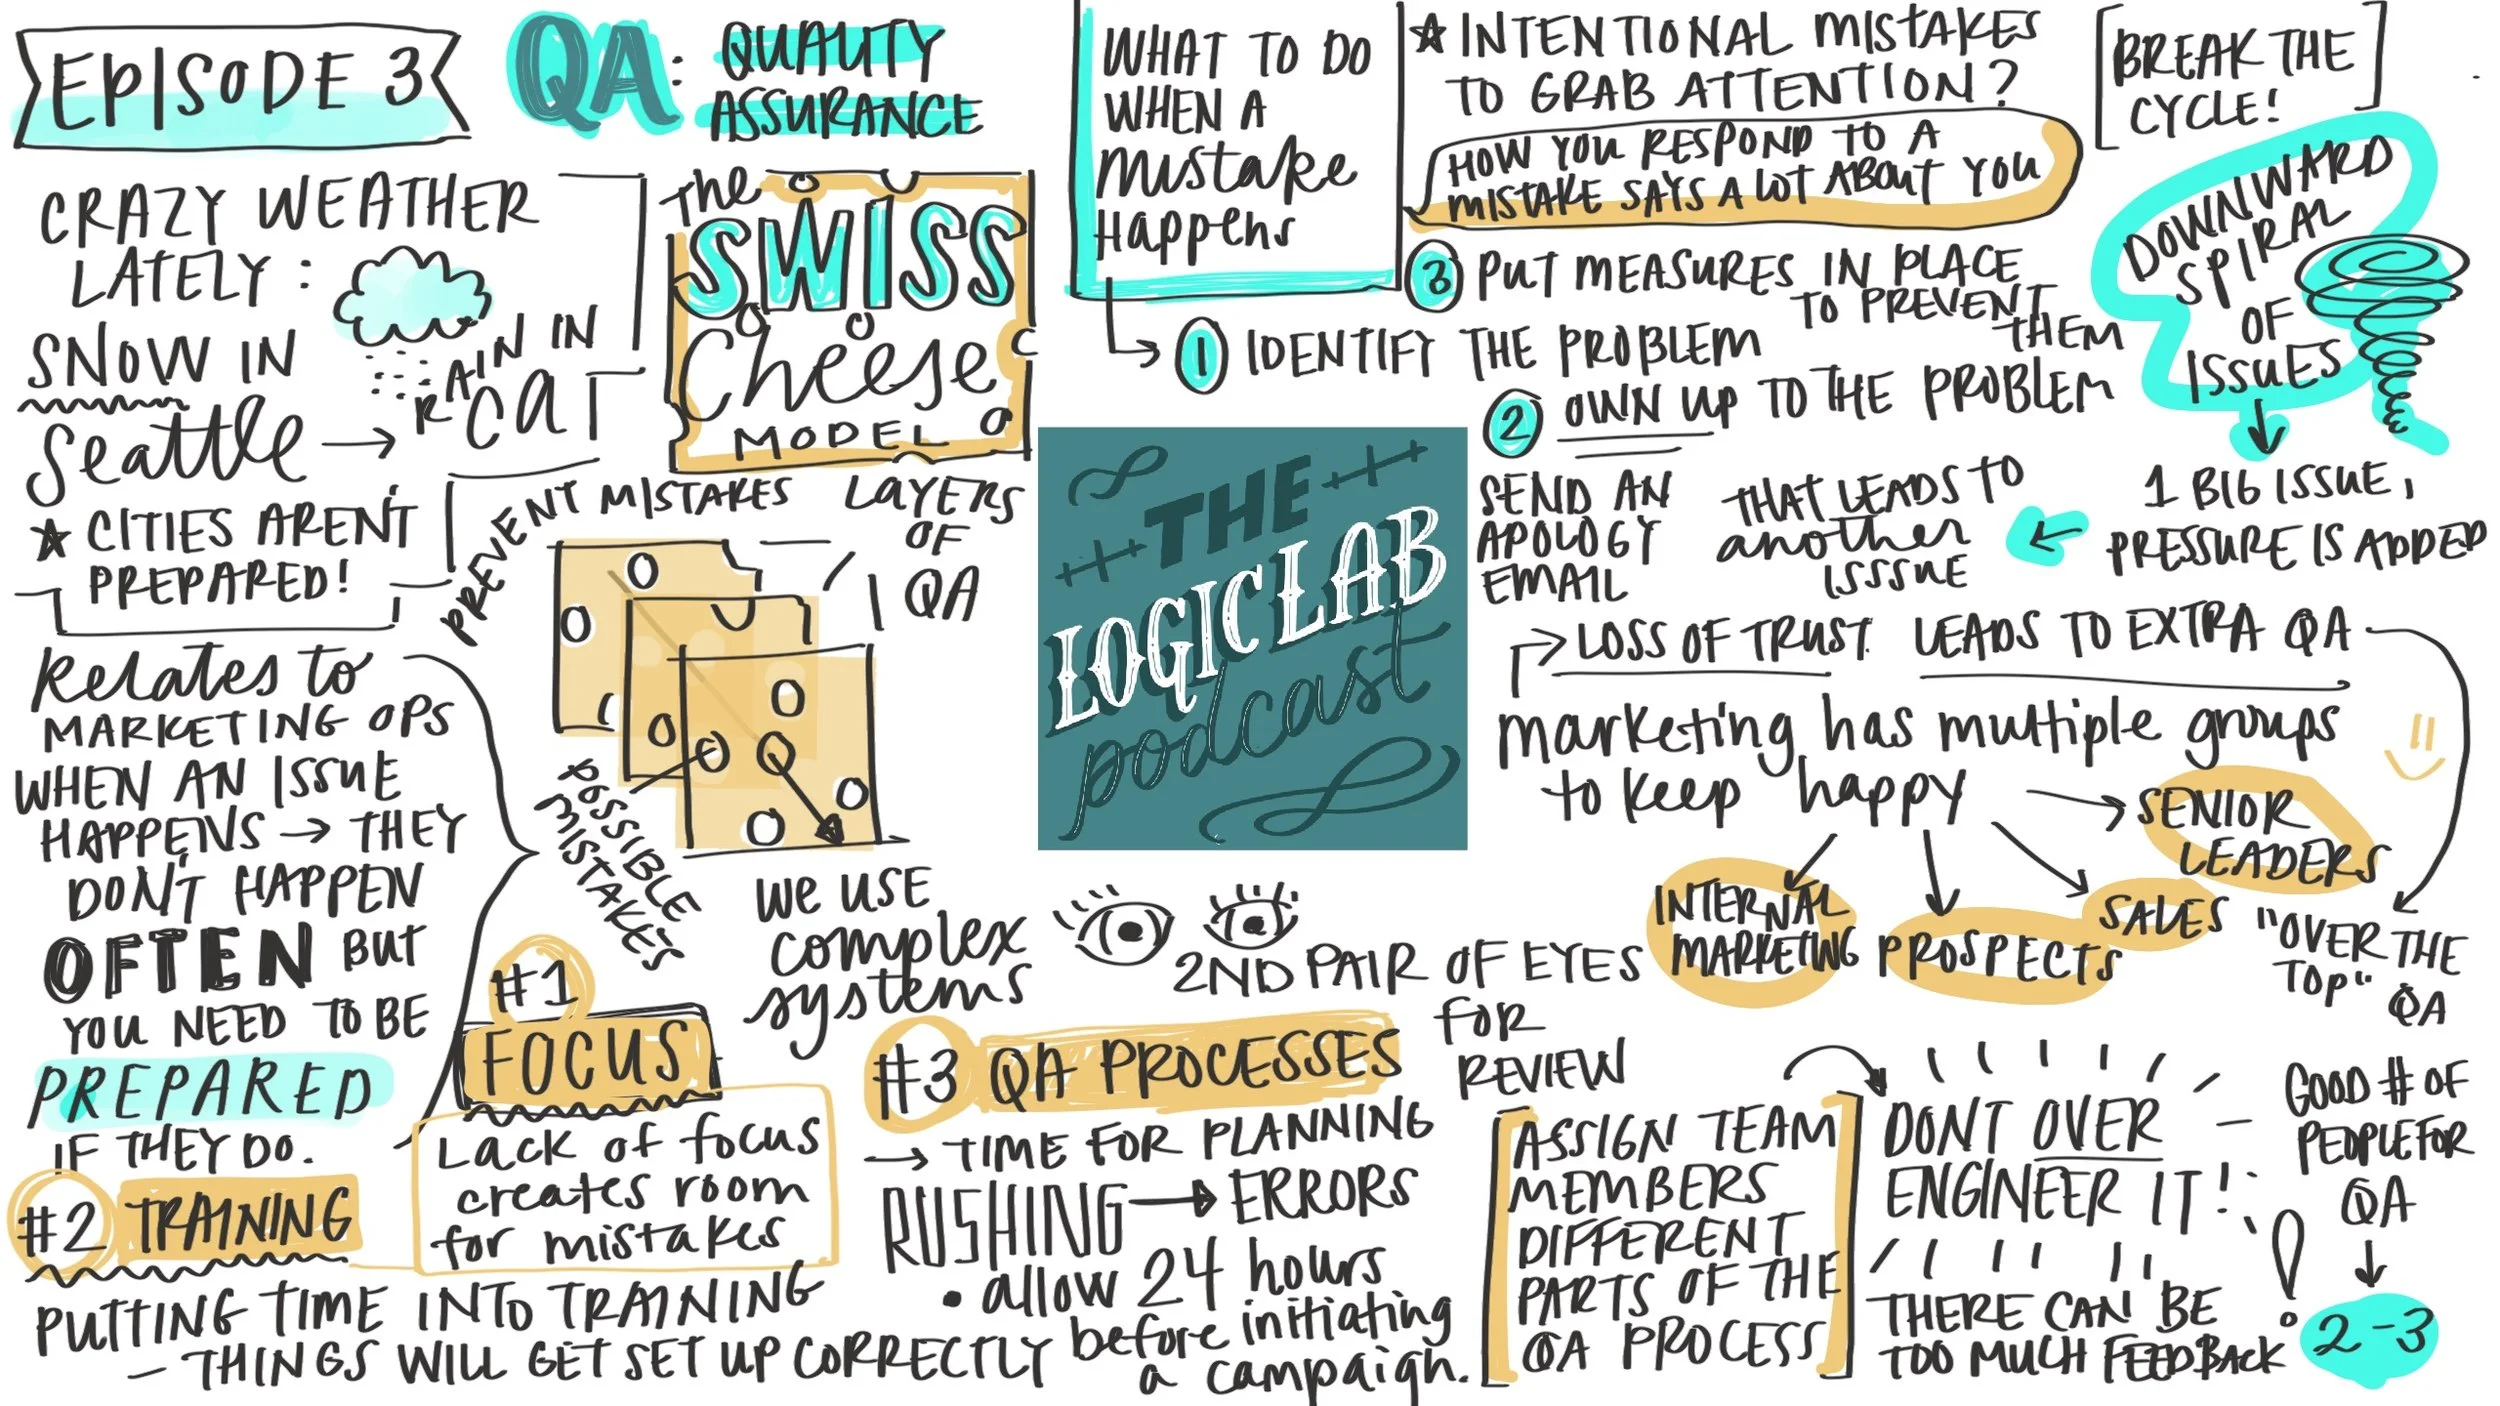 EPISODE 3
QA: QUALITY
ASSURANCE
CRAZY WEATHER
LATELY:
SNOW IN
Seattle
RAIN IN
CAT
★ CITIES AREN'T
PREPARED!
Relates to
MARKETING OPS
WHEN AN ISSUE
HAPPENS → THEY
DON'T HAPPEN
OFTEN BUT
YOU NEED TO BE
PREPARED
IF THEY DO.
The
SWISS
Cheese
MODEL
PREVENT MISTAKES
LAYERS
OF
QA
POSSIBLE
MISTAKES
WE USE
complex
systems
#1
FOCUS
Lack of focus
creates room
for mistakes
#2 TRAINING
PUTTING TIME INTO TRAINING
– THINGS WILL GET SET UP CORRECTLY
2ND PAIR OF EYES
FOR
REVIEW
#3 QA PROCESSES
→ TIME FOR PLANNING
RUSHING → ERRORS
• allow 24 hours
before initiating
a campaign.
THE
LOGICLAB
podcast
WHAT TO DO
WHEN A
Mistake
Happens
1 IDENTIFY THE PROBLEM
2 OWN UP TO THE PROBLEM
SEND AN
APOLOGY
EMAIL
3 PUT MEASURES IN PLACE
TO PREVENT
THEM
★ INTENTIONAL MISTAKES
TO GRAB ATTENTION?
HOW YOU RESPOND TO A
MISTAKE SAYS A LOT ABOUT YOU
[BREAK THE
CYCLE!]
DOWNWARD
SPIRAL
OF
ISSUES
1 BIG ISSUE,
PRESSURE IS ADDED
THAT LEADS TO
another
ISSSUE
LOSS OF TRUST. LEADS TO EXTRA QA
marketing has multiple groups
to keep happy
SENIOR
LEADERS
SALES
PROSPECTS
INTERNAL
MARKETING
"OVER THE
TOP"
QA
ASSIGN TEAM
MEMBERS
DIFFERENT
PARTS OF THE
QA PROCESS
DONT OVER
ENGINEER IT!
THERE CAN BE
TOO MUCH FEEDBACK
!
GOOD # OF
PEOPLE FOR
QA
2-3